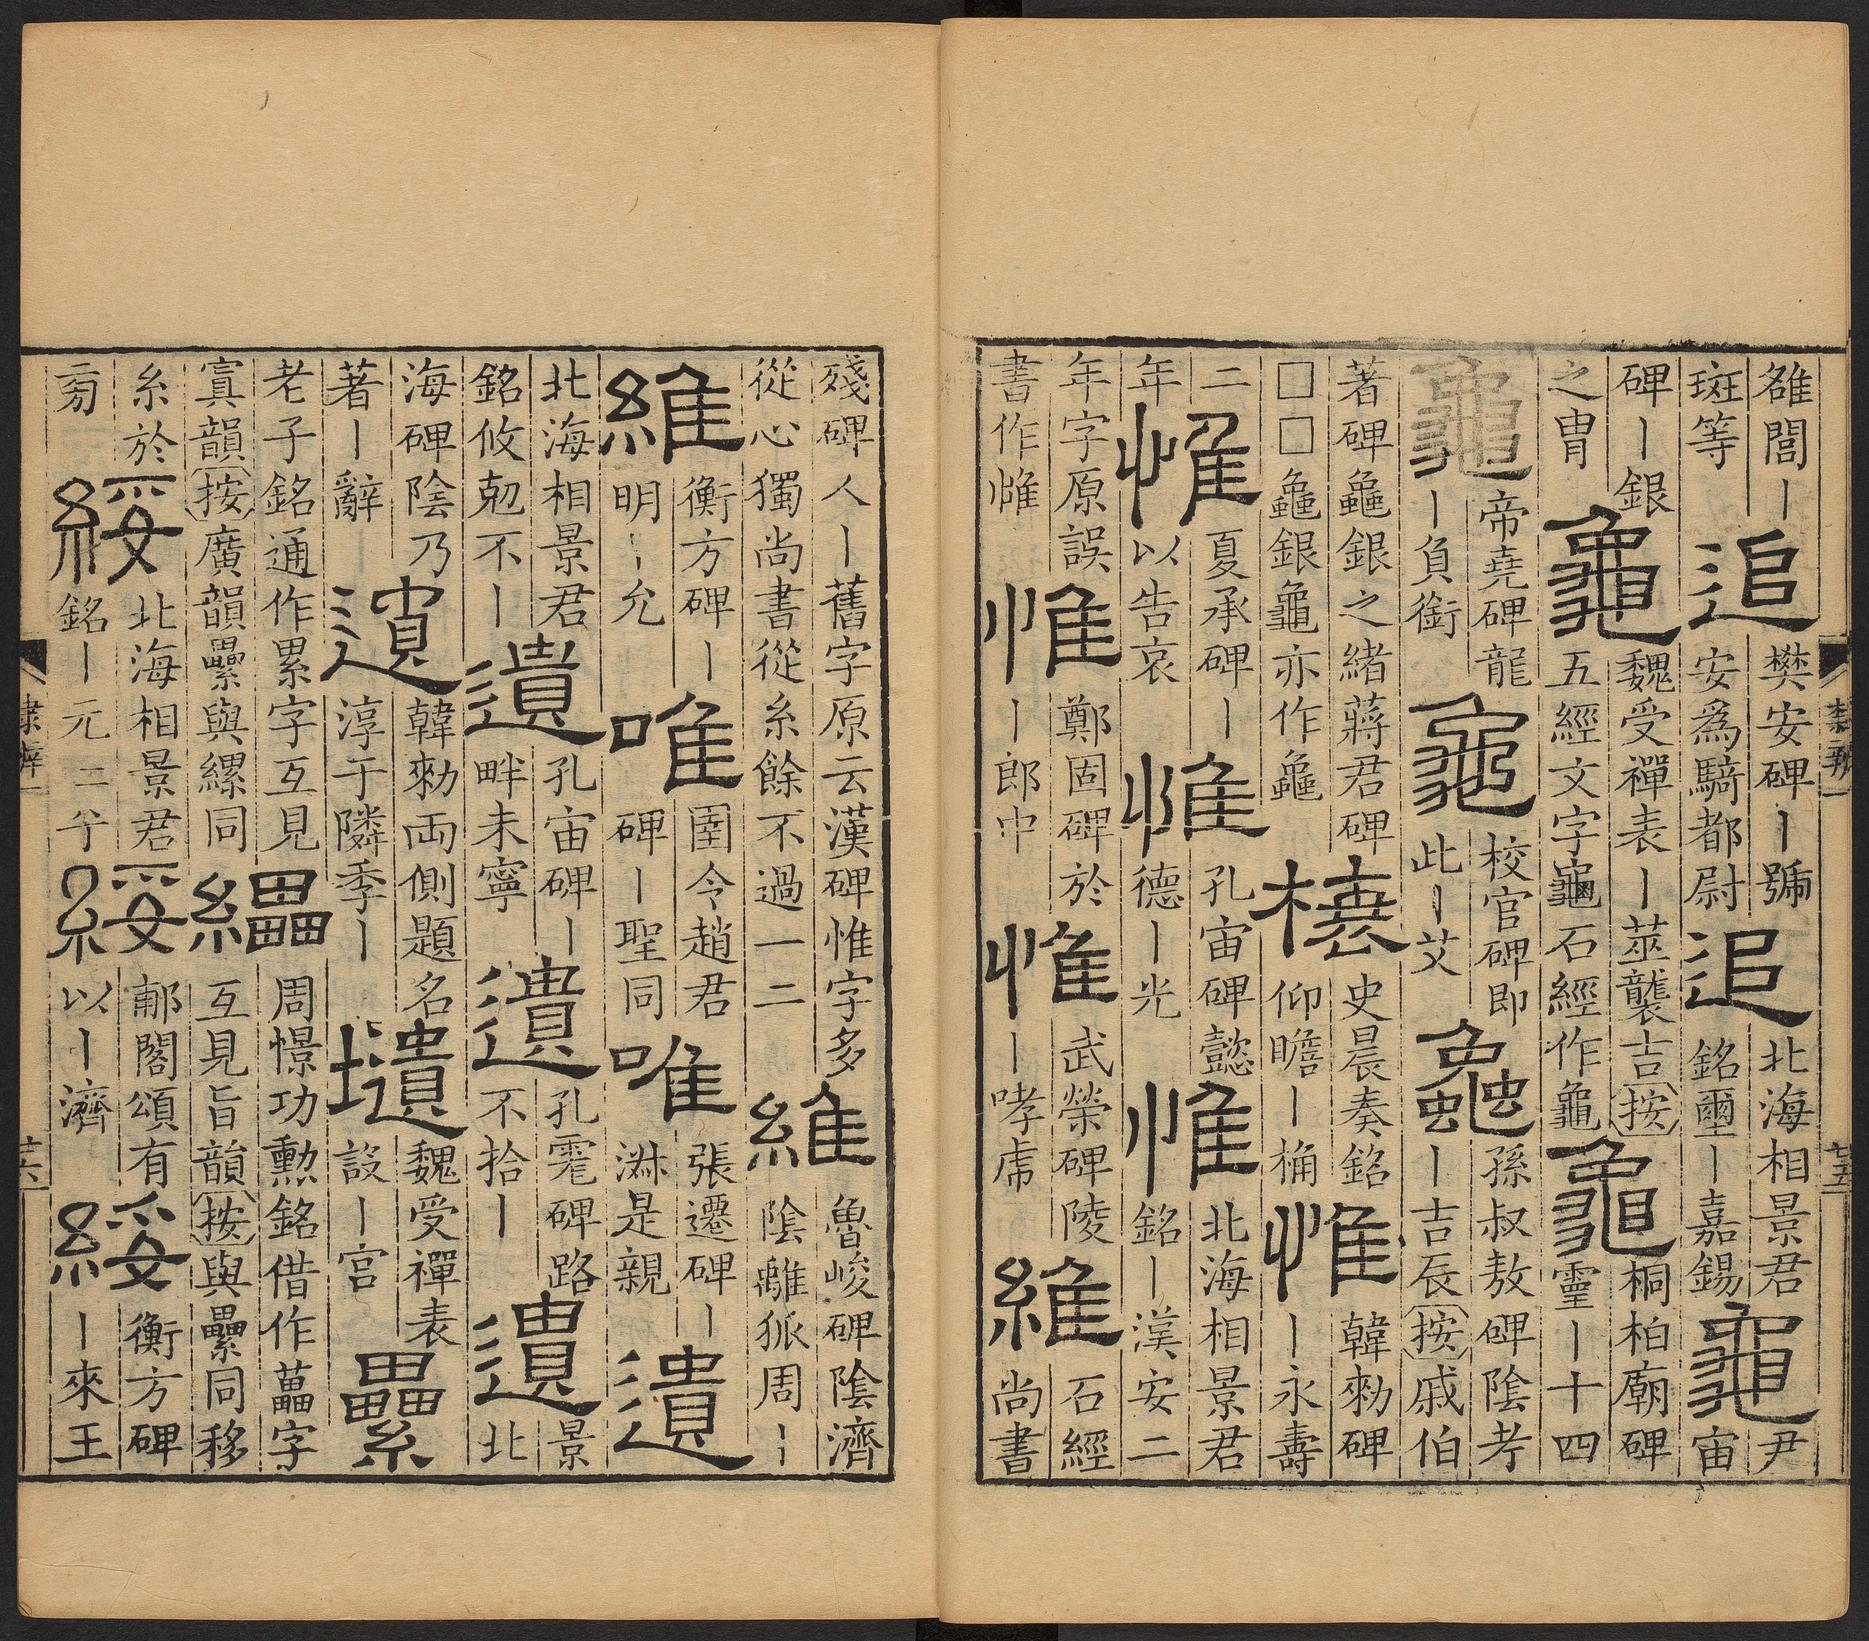 雒閭丨斑等追樊安碑丨號安爲騎都尉追北海相景君銘璽丨嘉錫龜尹宙
碑丨銀之胄龜魏受禪表丨莁襲吉按五經文字龜石經作龜龜桐柏廟碑靈丨十四
龜帝堯碑龍丨負銜龜校官碑即此丨艾龜孫叔敖碑陰考丨吉辰按戚伯
著碑龜銀之緒蔣君碑□□龜銀龜亦作龜史晨奏銘仰瞻丨桷惟韓勑碑丨永壽
二年惟夏承碑丨以告哀惟孔宙碑懿德丨光惟北海相景君銘丨漢安二
年字原誤書作惟惟鄭固碑於丨郎中惟武榮碑陵丨哮虎維石經尚書
隸辨一
廿五
殘碑人丨舊字原云漢碑惟字多從心獨尚書從糸餘不過一二維魯峻碑陰濟陰離狐周丨
維衡方碑丨明丨允唯圉令趙君碑丨聖同唯張遷碑丨淋是親遺
北海相景君銘攸剋不丨遺孔宙碑丨畔未寧遺孔霮碑路不拾丨遺景北
海碑陰乃著丨辭遺韓勑兩側題名淳于隣季丨壝魏受禪表設丨宮纍
老子銘通作累字互見寘韻按廣韻纍與縲同纝周憬功勳銘借作藟字互見旨韻按與纍同移
糸於旁綏北海相景君銘丨元二兮綏郙閣頌有以丨濟綏衡方碑丨來王
隸辨一
廿六